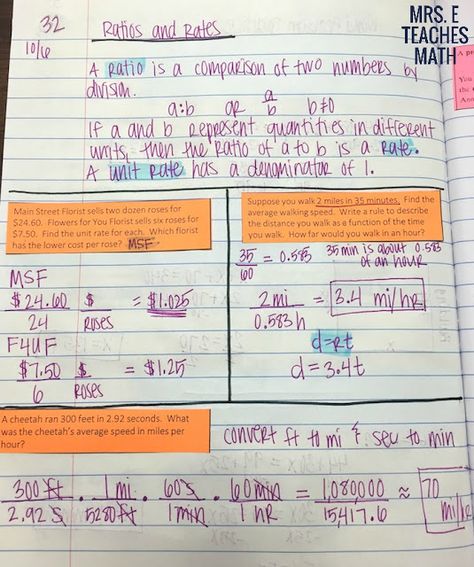 MRS. E
TEACHES
MATH
32
10/6
Ratios and Rates
A Ratio is a comparison of two numbers by
division.
a:b OR a/b b≠0
If a and b represent quantities in different
units, then the ratio of a to b is a Rate.
A unit Rate has a denominator of 1.
Main Street Florist sells two dozen roses for
$24.60. Flowers for You sells six roses for
$7.50. Find the unit rate for each. Which florist
has the lower cost per rose? MSF
MSF
$24.60 $ = $1.025
24 Roses
F4UF
$7.50 $ = $1.25
6 Roses
Suppose you walk 2 miles in 35 minutes. Find the
average walking speed. Write a rule to describe
the distance you walk as a function of the time
you walk. How far would you walk in an hour?
35/60 = 0.583 35 min is about 0.583
of an hour
2mi = 3.4 mi/hr
0.583h
d=rt
d=3.4t
A cheetah ran 300 feet in 2.92 seconds. What
was the cheetah's average speed in miles per
hour?
convert ft to mi & sec to min
300 ft · 1 mi · 60 s · 60 min = 1,080,000 ≈ 70
2.92 s 5280 ft 1 min 1 HR 15,417.6 mi/hr